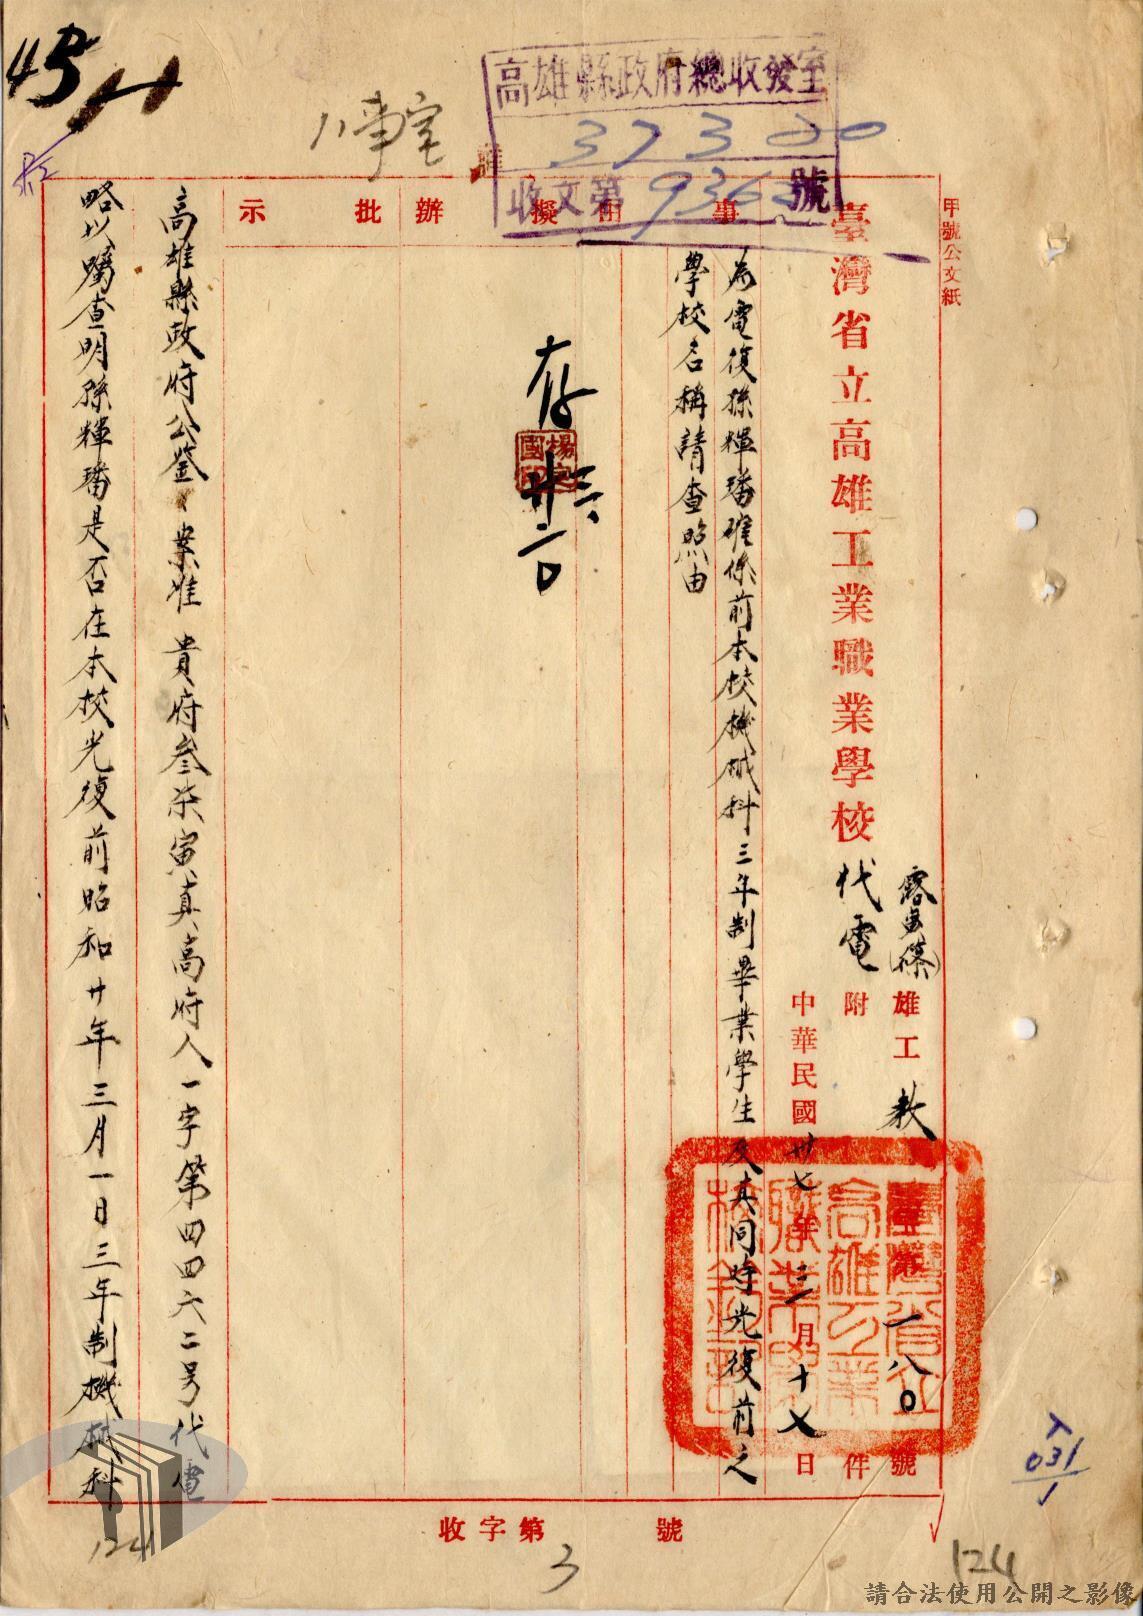 甲號公文紙
臺灣省立高雄工業職業學校代電
雄工教
字第一八〇號
附件
中華民國卅七年三月十七日
高雄縣政府總收發室
37 3 20
收文第936號
事由
為電復孫輝璠確係前本校機械科三年制畢業學生及其同時光復前之
學校名稱請查照由
擬辦
存
批示
高雄縣政府公鑒案准貴府叁柒寅真高府人一字第四四六二號代電
略以囑查明孫輝璠是否在本校光復前昭和廿年三月一日三年制機械科
人事室
收字第號
3
124
124
031
1
臺灣省立高雄工業職業學校
請合法使用公開之影像